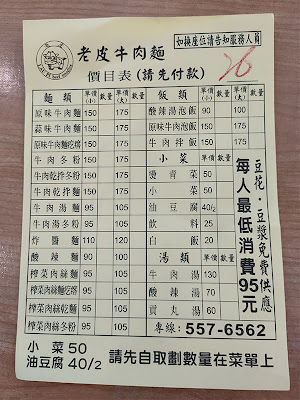 如換座位請告知服務人員
老皮牛肉麵
26
價目表(請先付款)
麵類 單價(小) 數量 單價(大) 數量
原味牛肉麵 150 175
蒜味牛肉麵 150 175
原味牛肉麵疙瘩 150 175
牛肉冬粉 150 175
牛肉乾拌冬粉 150 175
牛肉乾拌麵 150 175
牛肉湯麵 95 105
牛肉湯冬粉 95 105
炸醬麵 110 120
酸辣麵 90 100
榨菜肉絲麵 95 105
榨菜肉絲麵疙瘩 95 105
榨菜肉絲乾麵 95 105
榨菜肉絲冬粉 95 105
飯類 單價(小) 數量 單價(大) 數量
酸辣湯泡飯 90 100
原味牛肉泡飯 150 175
牛肉拌飯 150 175
小菜 單價 數量
燙青菜 50
小菜 50
油豆腐 40/2
飲料 25
白飯 20
湯類 單價 數量
牛肉湯 130
酸辣湯 70
貢丸湯 60
專線:557-6562
豆花·豆漿免費供應
每人最低消費95元
小菜 50
油豆腐 40/2
請先自取劃數量在菜單上